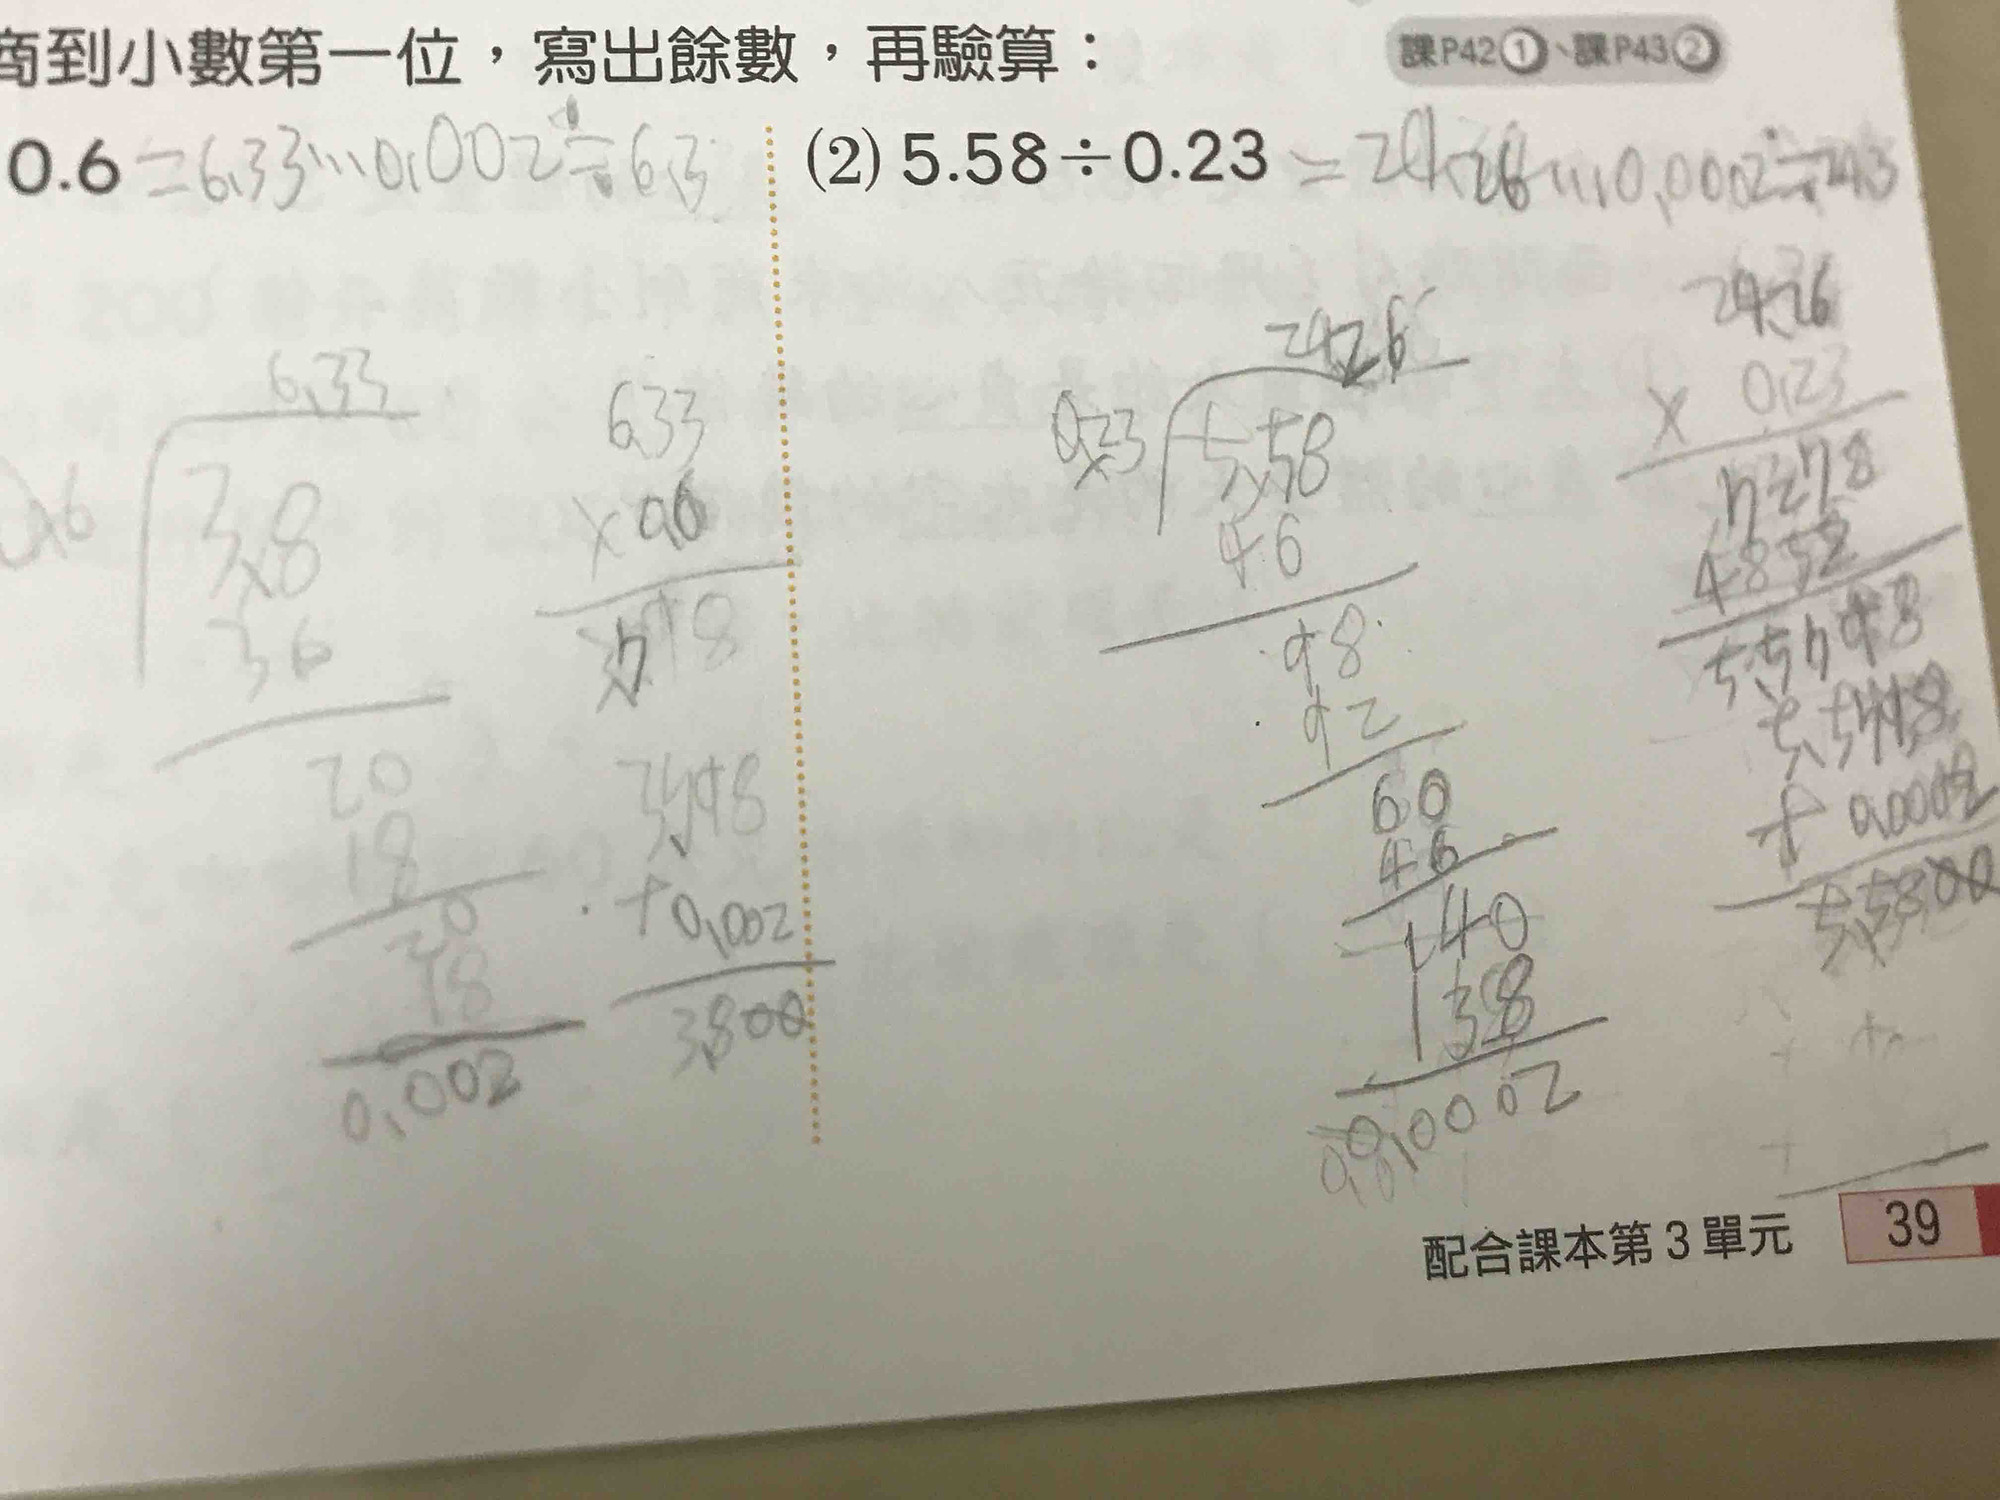 商到小數第一位，寫出餘數，再驗算：
課P42①、課P43②
0.6 = 6.33…0.002 ≑ 6.3
(2) 5.58÷0.23 = 24.26…0.0002 ≑ 24.3
6.33
0.6
3.8
36
20
18
20
18
0.002
6.33
× 0.6
3.798
3.798
+ 0.002
3.800
24.26
0.23
5.58
46
98
92
60
46
140
138
0.0002
24.26
× 0.23
7278
4852
5.5798
5.5798
+ 0.0002
5.5800
配合課本第3單元
39